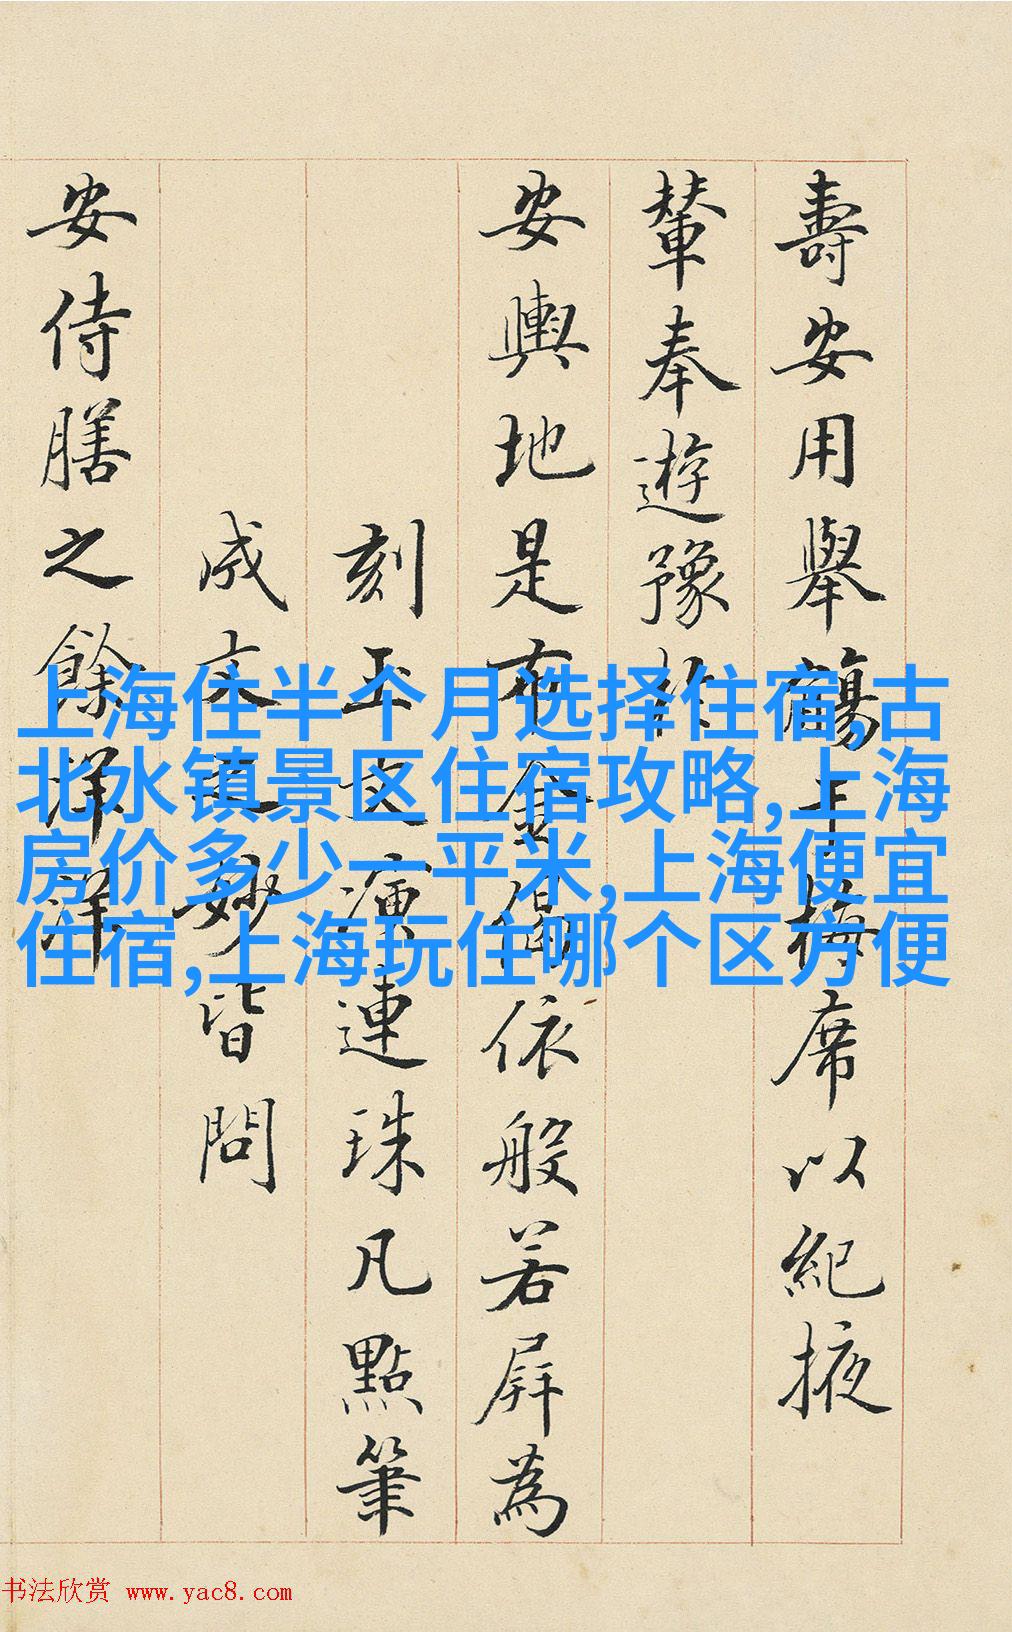 壽安用舉觴王梅席以紀掖
輦奉遊豫
安輿地是布金偈依般若屏為
刻玉文演連珠凡點筆
成文是妙皆問
安侍膳之餘洋洋
上海住半个月选择住宿,古
北水镇景区住宿攻略,上海
房价多少一平米,上海便宜
住宿,上海玩住哪个区方便
书法欣赏 www.yac8.com